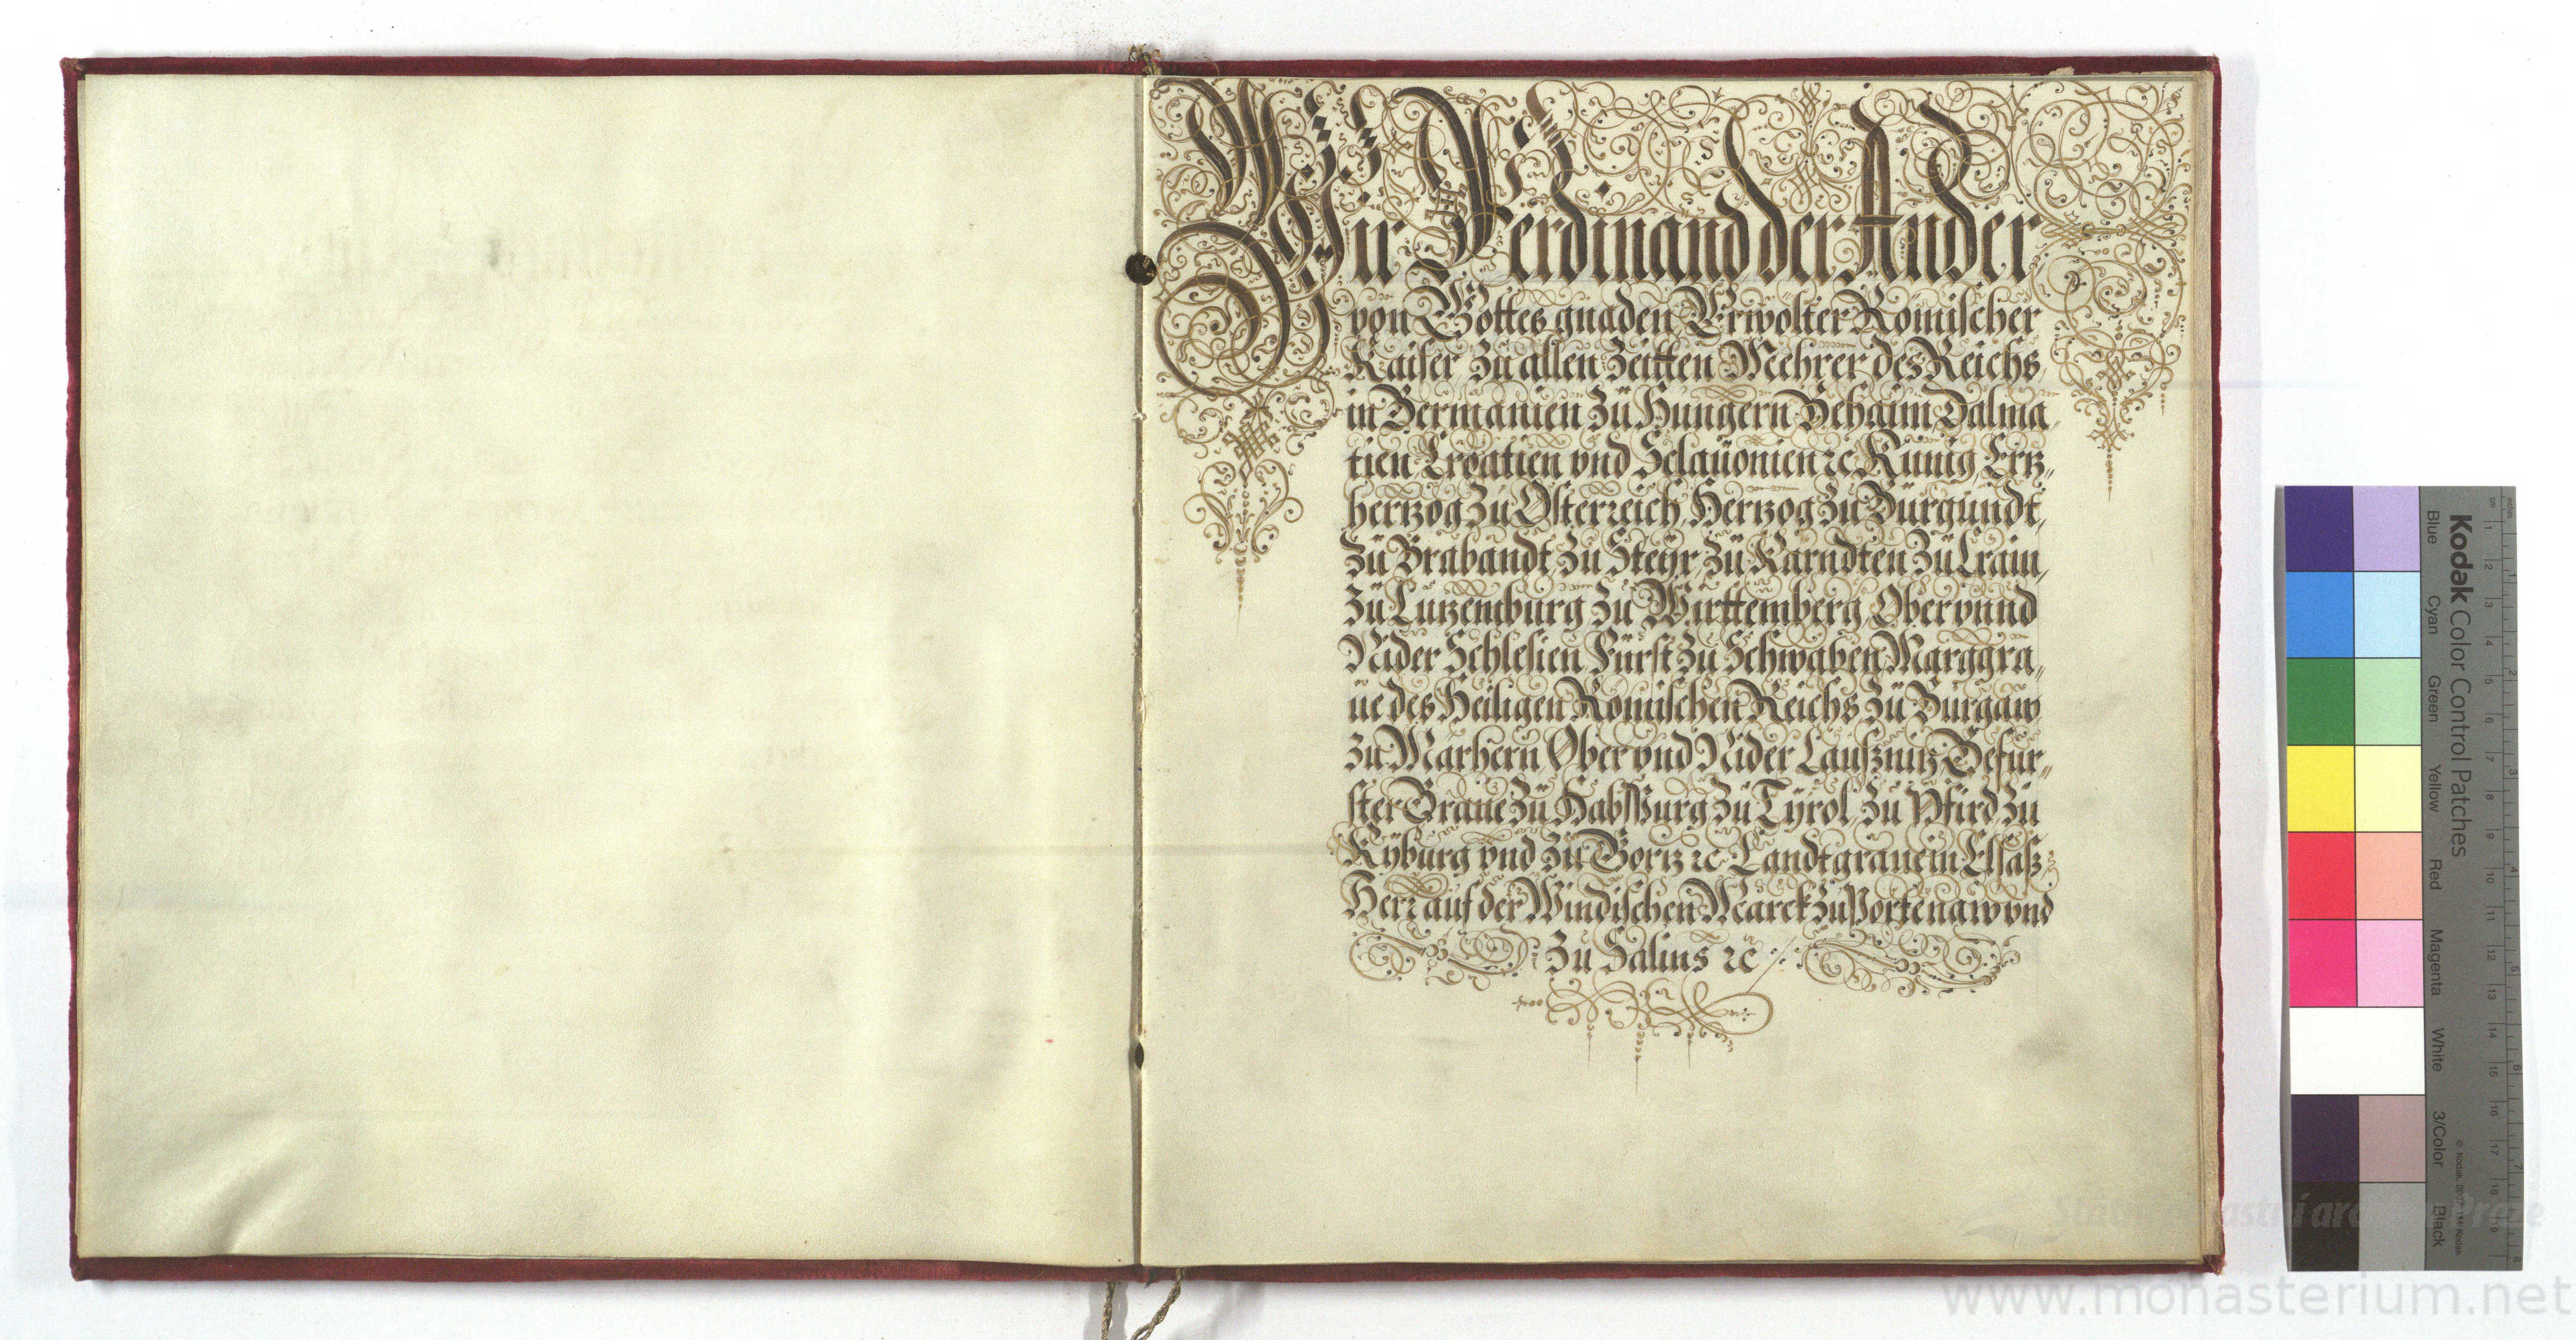 Wir Ferdinand der Ander
von Gottes gnaden, Erwölter Römischer
Kaiser, zu allen Zeitten Mehrer des Reichs,
in Germanien zü Hungern Behaim, Dalma,
tien Croatien vnd Sclaüonien ꝛc Künig, Ertz„
hertzog zu Össterreich, Hertzog zu Bürgündt,
zü Brabandt, zu Steÿr, zü Kärndten, zü Crain,
zü Lutzemburg, zu Wirttemberg, Ober vnnd
Nider Schlesien, Fürst zu Schwaben, Marggra„
üe des Heiligen Römischen Reichs, zü Burgaw
zu Marhern, Ober vnd Nider Lauſznitz, Gefür„
ster Graue zü Habsburg, zu Tÿrol, zu Pfird, zü
Kÿburg vnd zü Görtz ꝛc Landtgraue in Elsaſz,
Herr auf der Windischen Marck zu Portenaw vnd
zu Salins ꝛc
Kodak Color Control Patches
Blue
Cyan
Green
Yellow
Red
Magenta
White
3/Color
Black
© Kodak, 2007 TM: Kodak
Státní oblastní archiv v Praze
www.monasterium.net